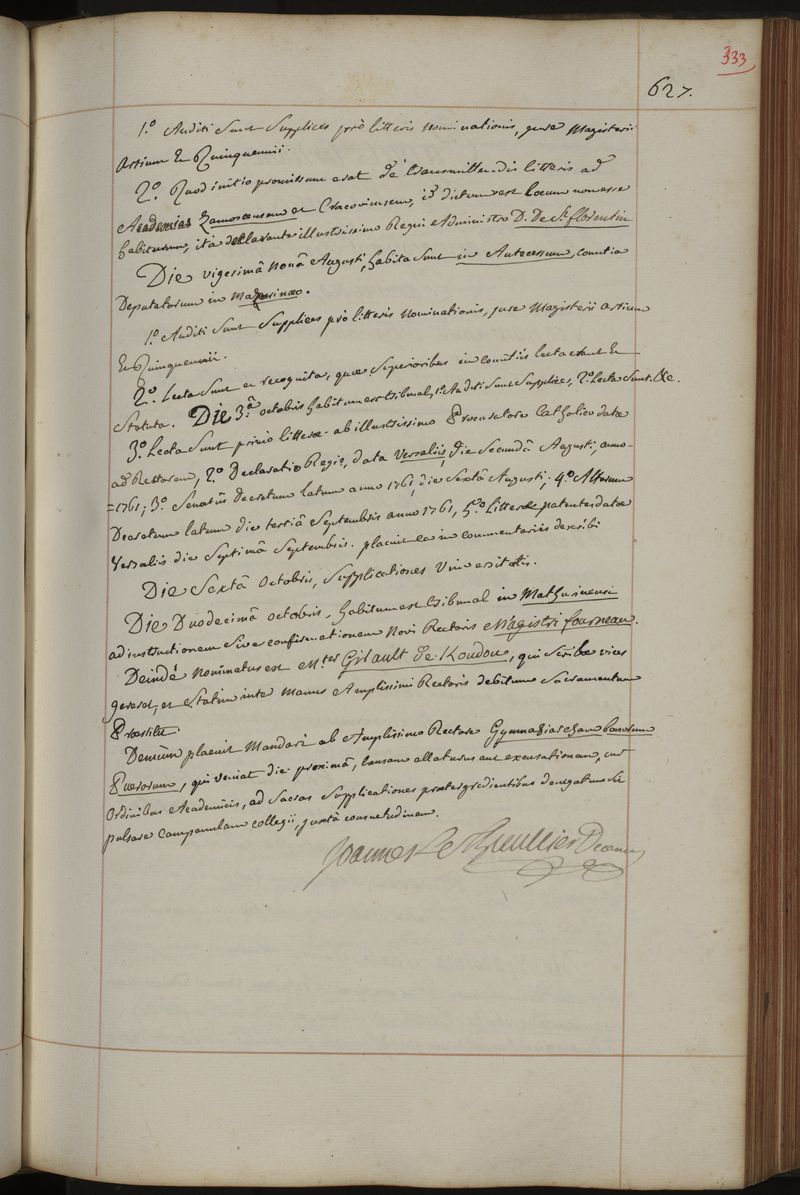 333
627.
1.º Auditi Sunt Supplices prò litteris nominationis, jure Magisterii
Artium Et Quinquennii.
2.º Quod initio promissum erat dè transmittendis litteris ad
Academias Zamoscensem et Cracoviensem, id dictum est locum non esse
habiturum, ità declarante illustrissimo Regni Administro D. De St. florentin
Die vigesimâ nonâ Augusti, habita Sunt in Antecessum, comitia
Deputatorum in Mazarinæo.
1.º Auditi Sunt Supplices prò litteris Nominationis, jure Magisterii Artium
Et Quinquennii.
2.º Lecta Sunt et recognita, quæ Superioribus in comitiis lecta erant Et
Statuta. Die 3.â octobris habitum est tribunal, 1.º Auditi Sunt Supplices, 2.º Lecta Sunt. &c.
3.º Lectæ Sunt primò litteræ ab illustrissimo Procuratore Catholico datæ
ad Rectorem, 2.º Declaratio Regis, data Versaliis, die Secundâ Augusti, anno
=1761; 3.º Senatûs Decretum latum anno 1761, die Sextâ Augusti; 4.º Alterum
Decretum latum die tertiâ Septembris anno 1761, 5.º Litteræ patentes datæ
Versaliis die Septimâ Septembris. placuit ea in commentariis describi
Die Sextâ Octobris, Supplicationes Universitatis.
Die Duodecimâ octobris, habitum est tribunal in Mathurinensi
ad instructionem Sive confirmationem Novi Rectoris Magistri fourneau.
Deindè Nominatus est M.ter Girault de Koudou, qui Scribæ vices
gereret, et Statim inter manus Amplissimi Rectoris debitum Sacramentum
Præstitit.
Demùm placuit Mandari ab Amplissimo Rectore Gymnasiarcham bonorum
Puerorum, qui veniat die proximâ, causam allaturus aut excusationem, cur
Ordinibus Academicis, ad Sacras Supplicationes prætergredientibus denegatum Sit
pulsare campanulam collegii, juxtà consuetudinem.
Joannes Le